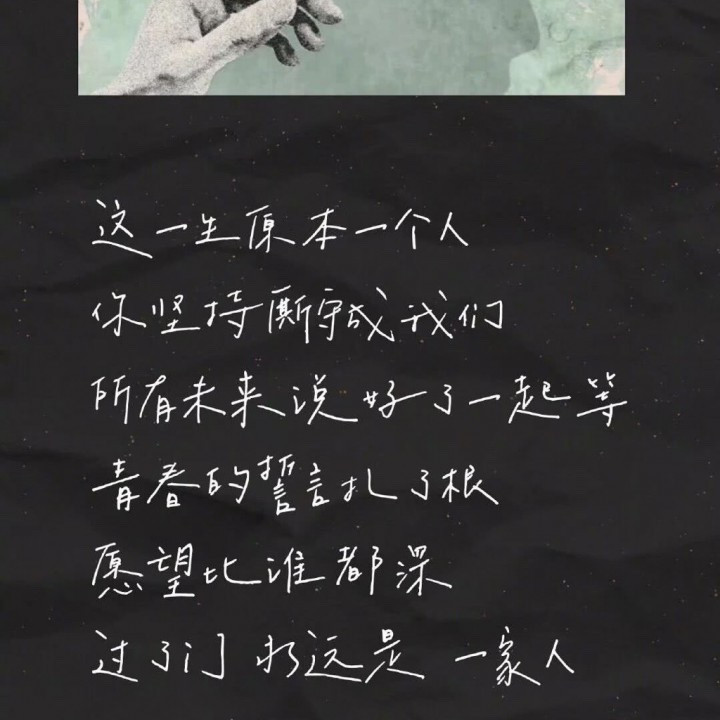 这一生原本一个人
你坚持厮守成我们
所有未来说好了一起等
青春的誓言扎了根
愿望比谁都深
过了门 永远是 一家人